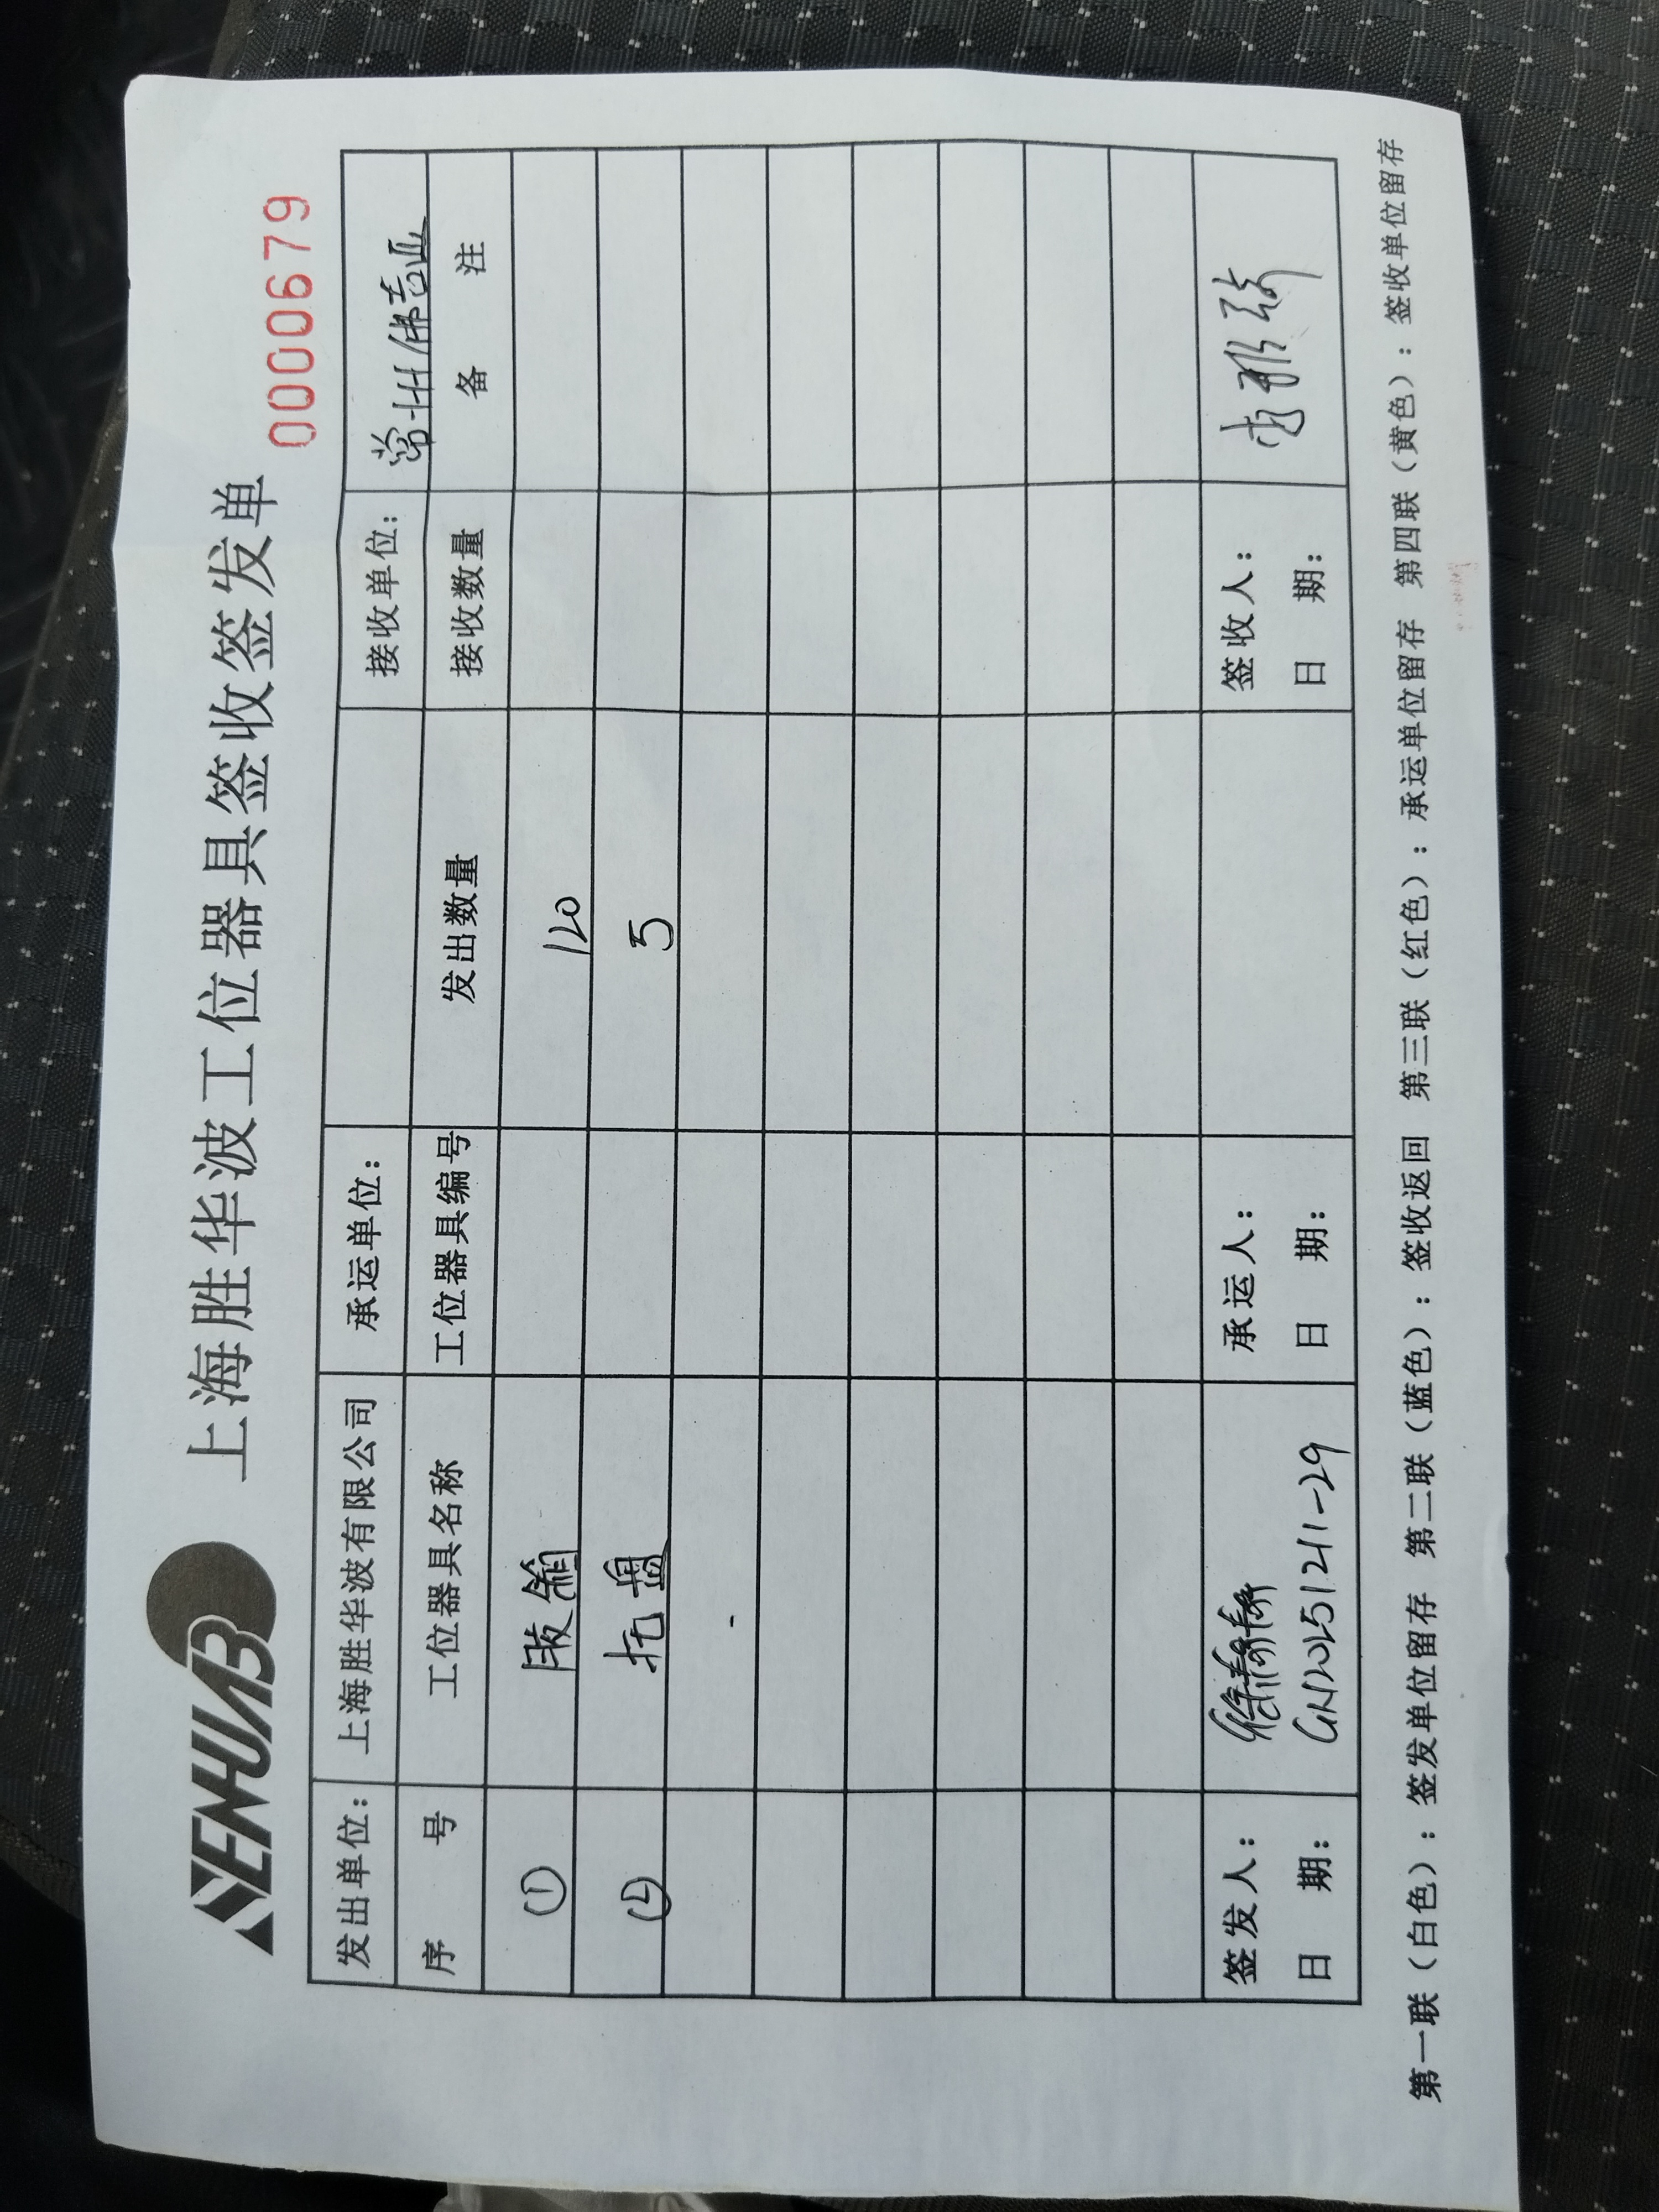 SENHUAB
上海胜华波工位器具签收签发单
0000679
发出单位： 上海胜华波有限公司 承运单位： 接收单位： 常州佛吉亚
序 号 工位器具名称 工位器具编号 发出数量 接收数量 备 注
① 胶箱 120
② 托盘 5
签发人： 承运人： 签收人：
日 期： GN20251211-29 日 期： 日 期：
第一联（白色）：签发单位留存 第二联（蓝色）：签收返回 第三联（红色）：承运单位留存 第四联（黄色）：签收单位留存